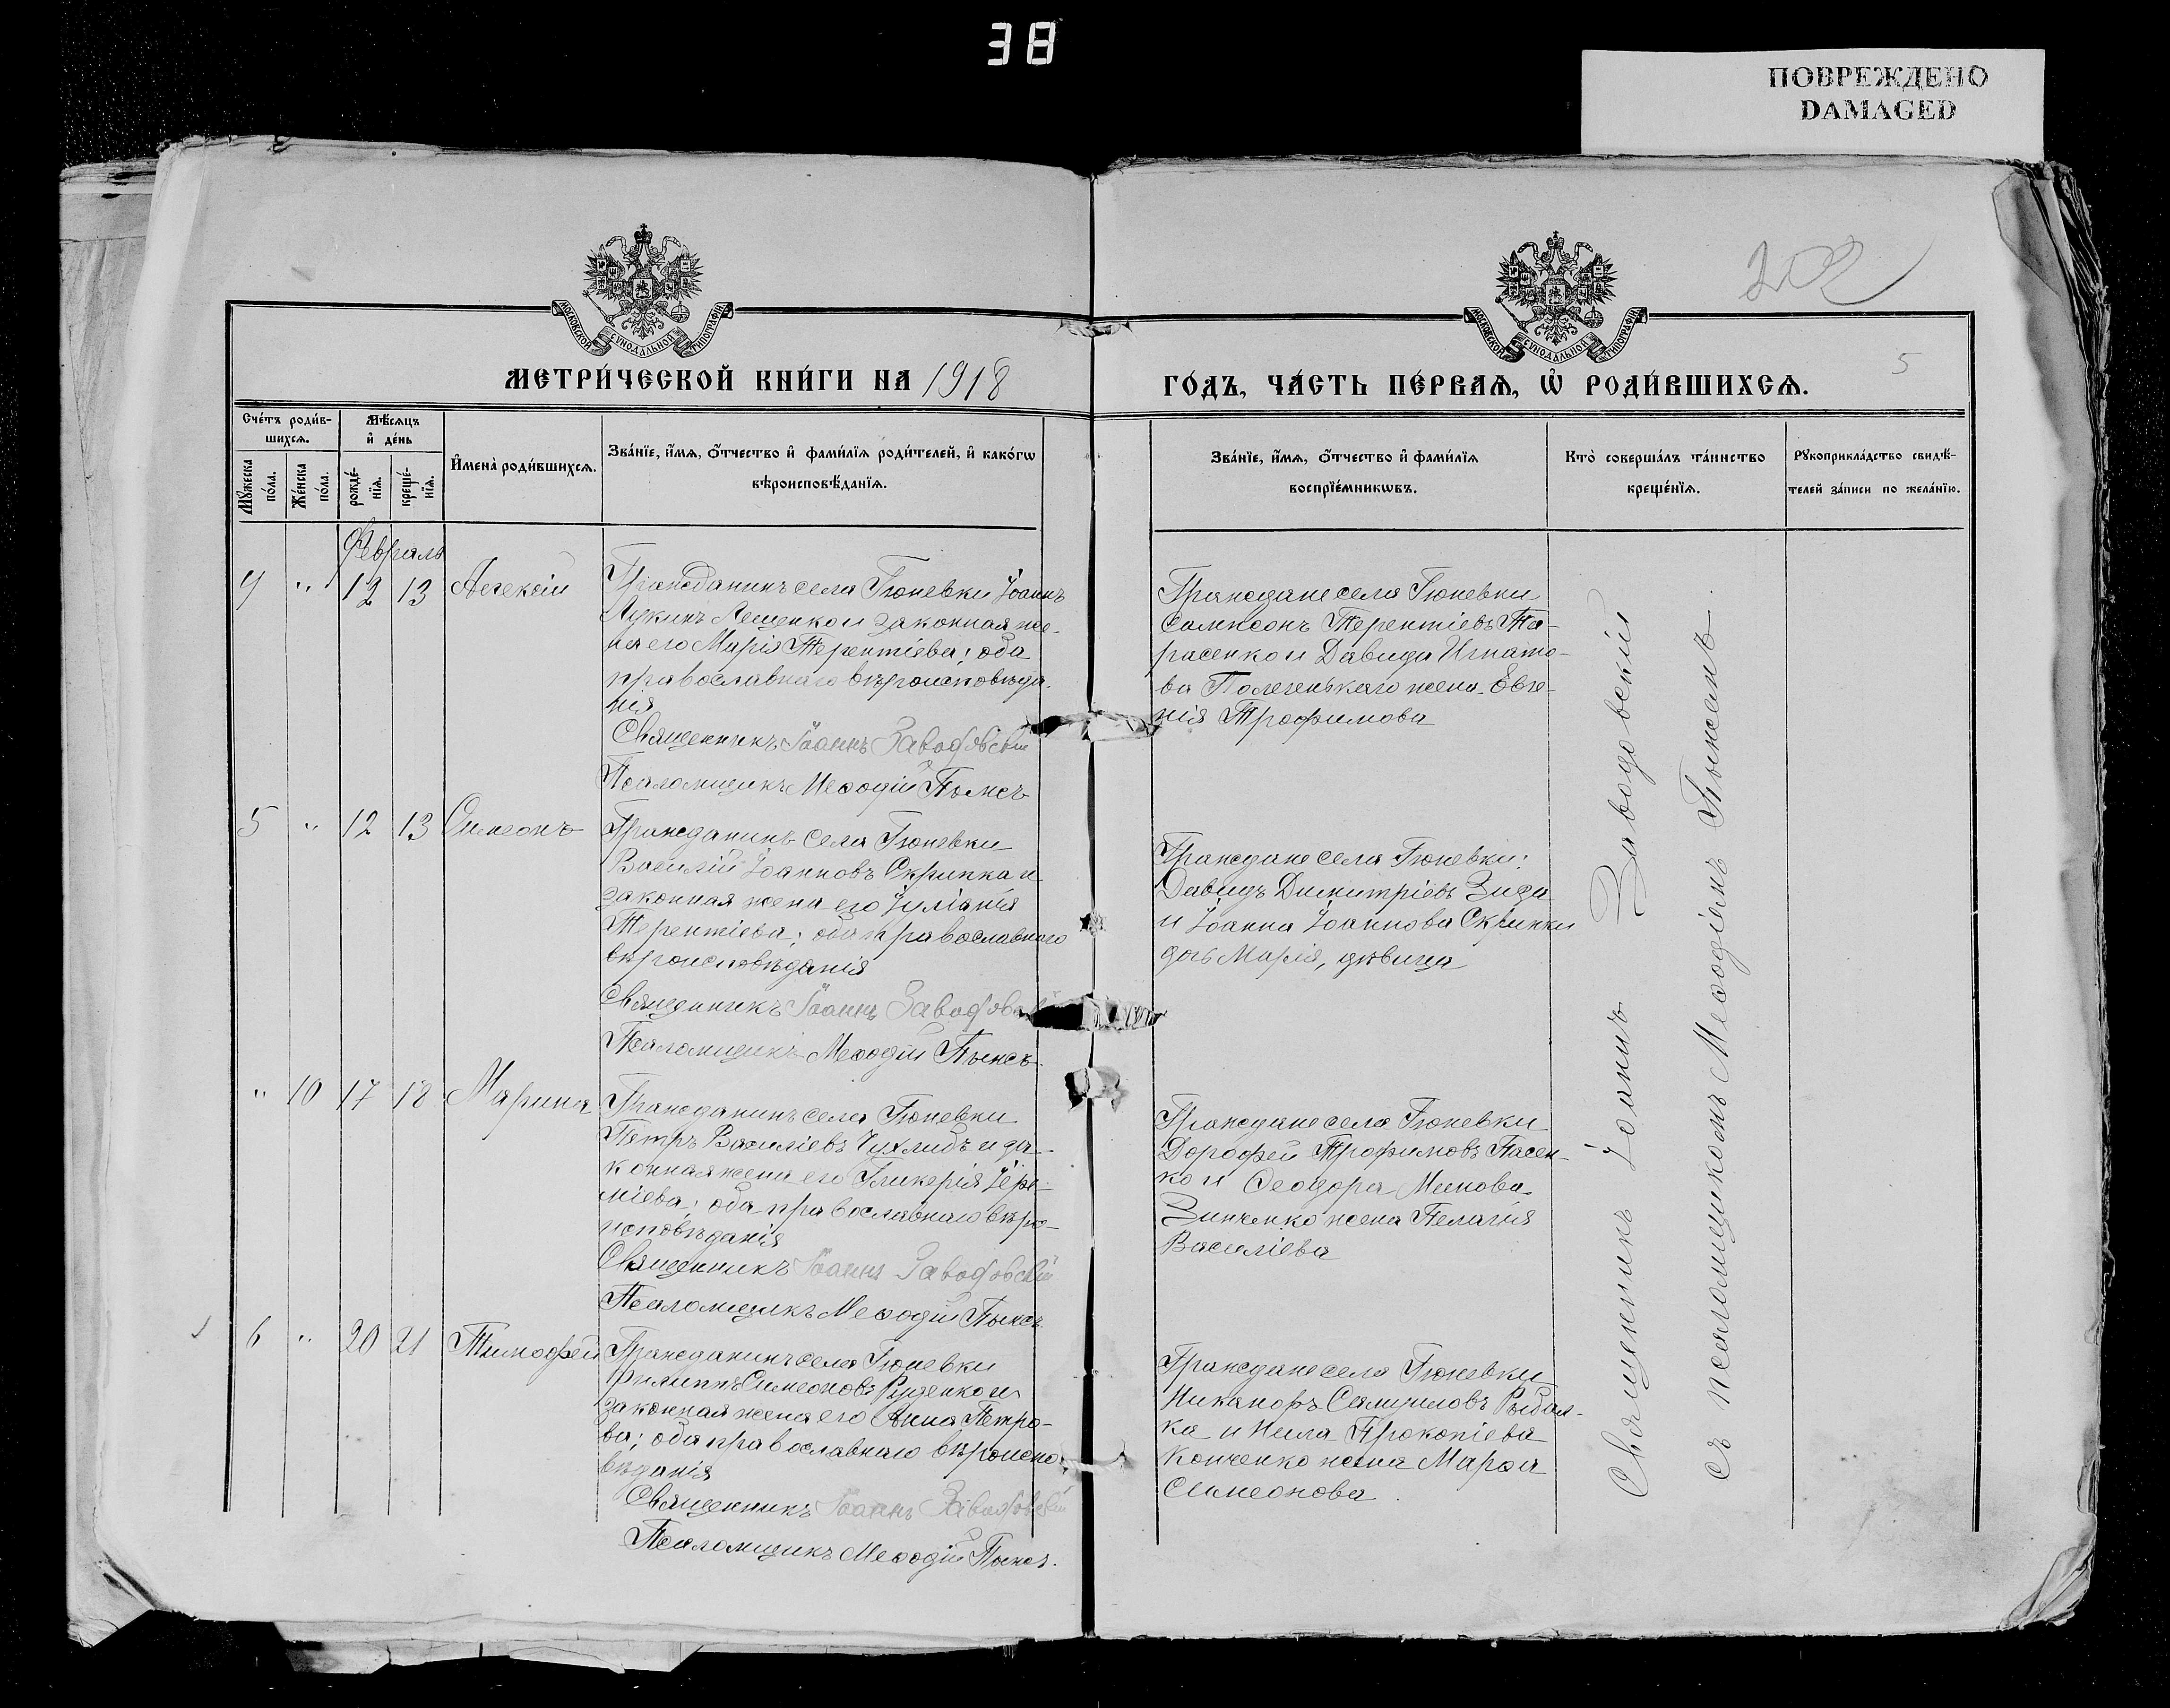 38
ПОВРЕЖДЕНО
DAMAGED
202
5
МОСКОВСКОЙ СѴНОДАЛЬНОЙ ТИПОГРАФІИ
МОСКОВСКОЙ СѴНОДАЛЬНОЙ ТИПОГРАФІИ
МЕТРИ́ЧЕСКОЙ КНИ́ГИ НА 1918
ГО́ДЪ, ЧА́СТЬ ПЕ́РВАѦ, Ѽ РОДИ́ВШИХСѦ.
Сче́тъ роди́в-
шихсѧ.
Мꙋ́жеска по́ла.
Же́нска по́ла.
Мѣ́сѧцъ
и҆ де́нь
рожде́-
нїѧ.
креще́-
нїѧ.
И҆мена̀ роди́вшихсѧ.
Зва́нїе, и҆́мѧ, ѻ҆́тчество и҆ фами́лїѧ роди́телей, и҆ како́гѡ
вѣроисповѣ́данїѧ.
Зва́нїе, и҆́мѧ, ѻ҆́тчество и҆ фами́лїѧ
воспрїе́мникѡвъ.
Кто̀ соверша́лъ та́инство
креще́нїѧ.
Рꙋкоприкла́дство свидѣ́-
телей за́писи по жела́нїю.
Февраль
4 " 12 13 Алексій
Гражданинъ села Гюневки Іоаннъ
Лукинъ Лещенко и законная же-
на его Марія Терентіева; оба
православнаго вѣроисповѣда-
нія
Священникъ Іоаннъ Заводовскій
Псаломщикъ Меѳодій
Граждане села Гюневки
Сампсонъ Терентіевъ Та-
расенко и Давида Игнато-
ва жена Евге-
нія Трофимова
5 " 12 13 Симеонъ
Гражданинъ села Гюневки
Василій Іоанновъ Скрипка и
законная жена его Іуліанія
Терентіева; оба православнаго
вѣроисповѣданія
Священникъ Іоаннъ Заводовскій
Псаломщикъ Меѳодій
Граждане села Гюневки:
Давидъ Димитріевъ
и Іоанна Іоаннова Скрипки
дочь Марія, дѣвица
" 10 17 18 Марина
Гражданинъ села Гюневки
Петръ Василіевъ и за-
конная жена его Гликерія Іере-
міева; оба православнаго вѣро-
исповѣданія
Священникъ Іоаннъ Заводовскій
Псаломщикъ Меѳодій
Граждане села Гюневки
Дорофей Трофимовъ Пасен-
ко и Ѳеодора
Зинченко жена Пелагія
Василіева
6 " 20 21 Тимофей
Гражданинъ села Гюневки
Филиппъ Симеоновъ Руденко и
законная жена его Анна Петро-
ва; оба православнаго вѣроиспо-
вѣданія
Священникъ Іоаннъ Заводовскій
Псаломщикъ Меѳодій
Граждане села Гюневки
Никаноръ Самуиловъ Рыбал-
ка и Нила Прокопіева
Конченко жена Марѳа
Симеонова
Священникъ Іоаннъ Заводовскій
съ псаломщикомъ Меѳодіемъ